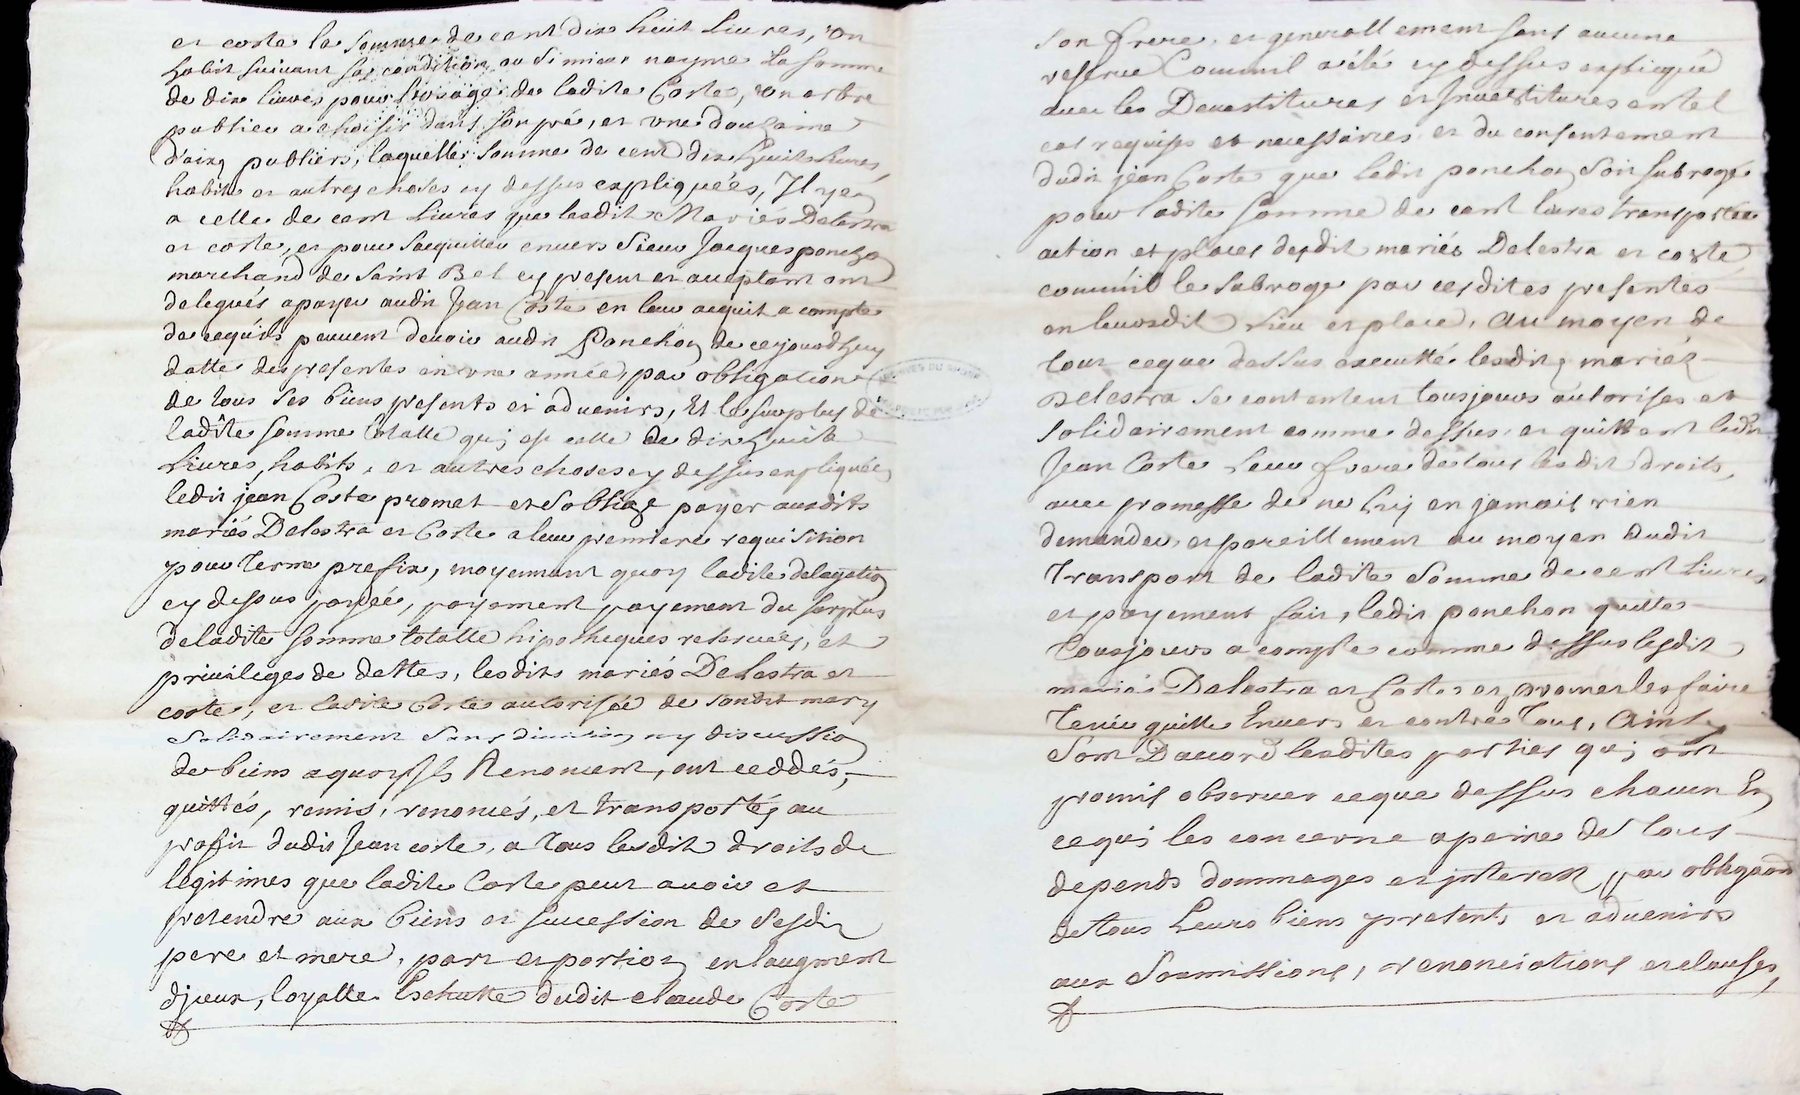 et coste la somme de cent dix huit Livres, Un
habit suivant sa condition ou si mieux nayme La somme
de dix livres pour l'usage de ladite Coste, un arbre
publier a choisir dans son pré, et une douzaine
d'aix publiers, laquelle somme de cent dix huit Livres,
habits et autres choses cy dessus expliquées, Il y en
a celle de cent Livres que lesdit Mariés Delestra
et coste, et pour sacquitter envers Sieur Jacques ponchon
marchand de Saint Bel cy present et acceptant ont
delegués a payer audit Jean Coste en leur acquit a compte
de cequ'ils peuvent devoir audit Ponchon de cejourdhuy
datte des presentes en une année, par obligation
de tous ses biens presents et advenirs, Et le surplus de
ladite somme totalle qui est celle de dix huit
Livres, habits, et autres choses cy dessus expliquées
ledit jean Coste promet et s'oblige payer ausdits
mariés Delestra et Coste a leur premiere requisition
pour terme prefix, moyennant quoy ladite delegation
cy dessus payée, payement payement du surplus
de ladite somme totalle hipotheques reservées, et
privileges de dettes, lesdits mariés Delestra et
coste, et ladite Coste autorisée de sondit mary
solidairement sans division ny discussion
de biens a quoy ils Renoncent, ont ceddés,
quittés, remis, renoncés, et transportés au
profit dudit Jean coste, a tous lesdit droits de
legitimes que ladite Coste peut avoir et
pretendre aux biens et succession de sesdit
pere et mere, part et portion en laugment
djceux, loyalle Eschutte dudit claude Coste
son frere, et generallement sans aucune
reserve Comm'il a été cy dessus expliqué
avec les Devestitures et Investitures en tel
cas requises et necessaires et du consentement
dudit jean Coste que ledit ponchon soit subrogé
pour ladite somme de cent livres transportée
action et places desdit mariés Delestra et coste
comm'il le subroge par cesdites presentes
en leursdit lieu et place, au moyen de
tout ceque dessus executté lesdits mariés
Delestra se contentent tousjours autorisés et
solidairement comme dessus et quittent ledit
Jean Coste leur frere de tous lesdit droits,
avec promesse de ne luy en jamais rien
demander, et pareillement au moyen dudit
transport de ladite somme de cent Livres
et payement fait, ledit ponchon quittes
tousjours a compte comme dessus lesdit
mariés Delestra et Coste et promet les faire
tenir quitte Envers et contre tous, Ainsy
sont Daccord lesdites parties qui ont
promis observer ceque dessus chacun En
cequi les concerne a peine de tous
depends dommages et interest par obligation
de tous Leurs biens presents et advenirs
aux soumissions, renonciations et clauses,